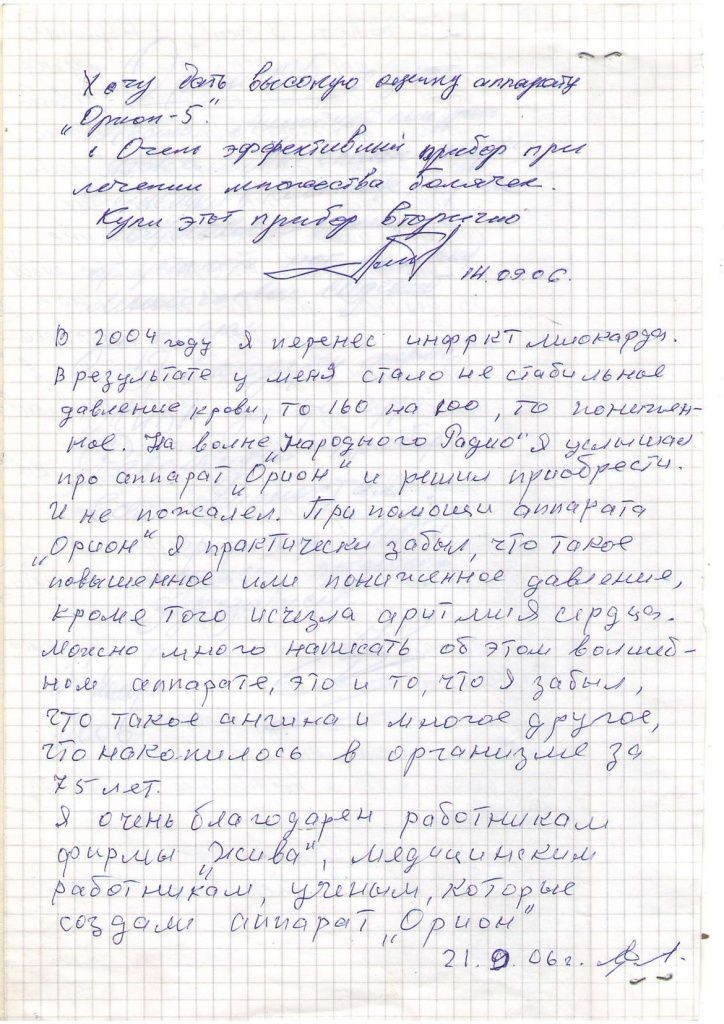 Хочу дать высокую оценку аппарату
„Орион-5".
Очень эффективный прибор при
лечении множества болячек.
Купил этот прибор вторично
14.09.06.
В 2004 году я перенес инфркт миокарда.
В результате у меня стало не стабильное
давление крови, то 160 на 100, то понижен-
ное. На волне „Народного Радио" я услышал
про аппарат „Орион" и решил приобрести.
И не пожалел. При помощи аппарата
„Орион" я практически забыл, что такое
повышенное или пониженное давление,
кроме того исчезла аритмия сердца.
Можно много написать об этом волшеб-
ном аппарате, это и то, что я забыл,
что такое ангина и многое другое,
что накопилось в организме за
75 лет.
Я очень благодарен работникам
фирмы „Жива", медицинским
работникам, ученым, которые
создали аппарат „Орион"
21.9.06г.